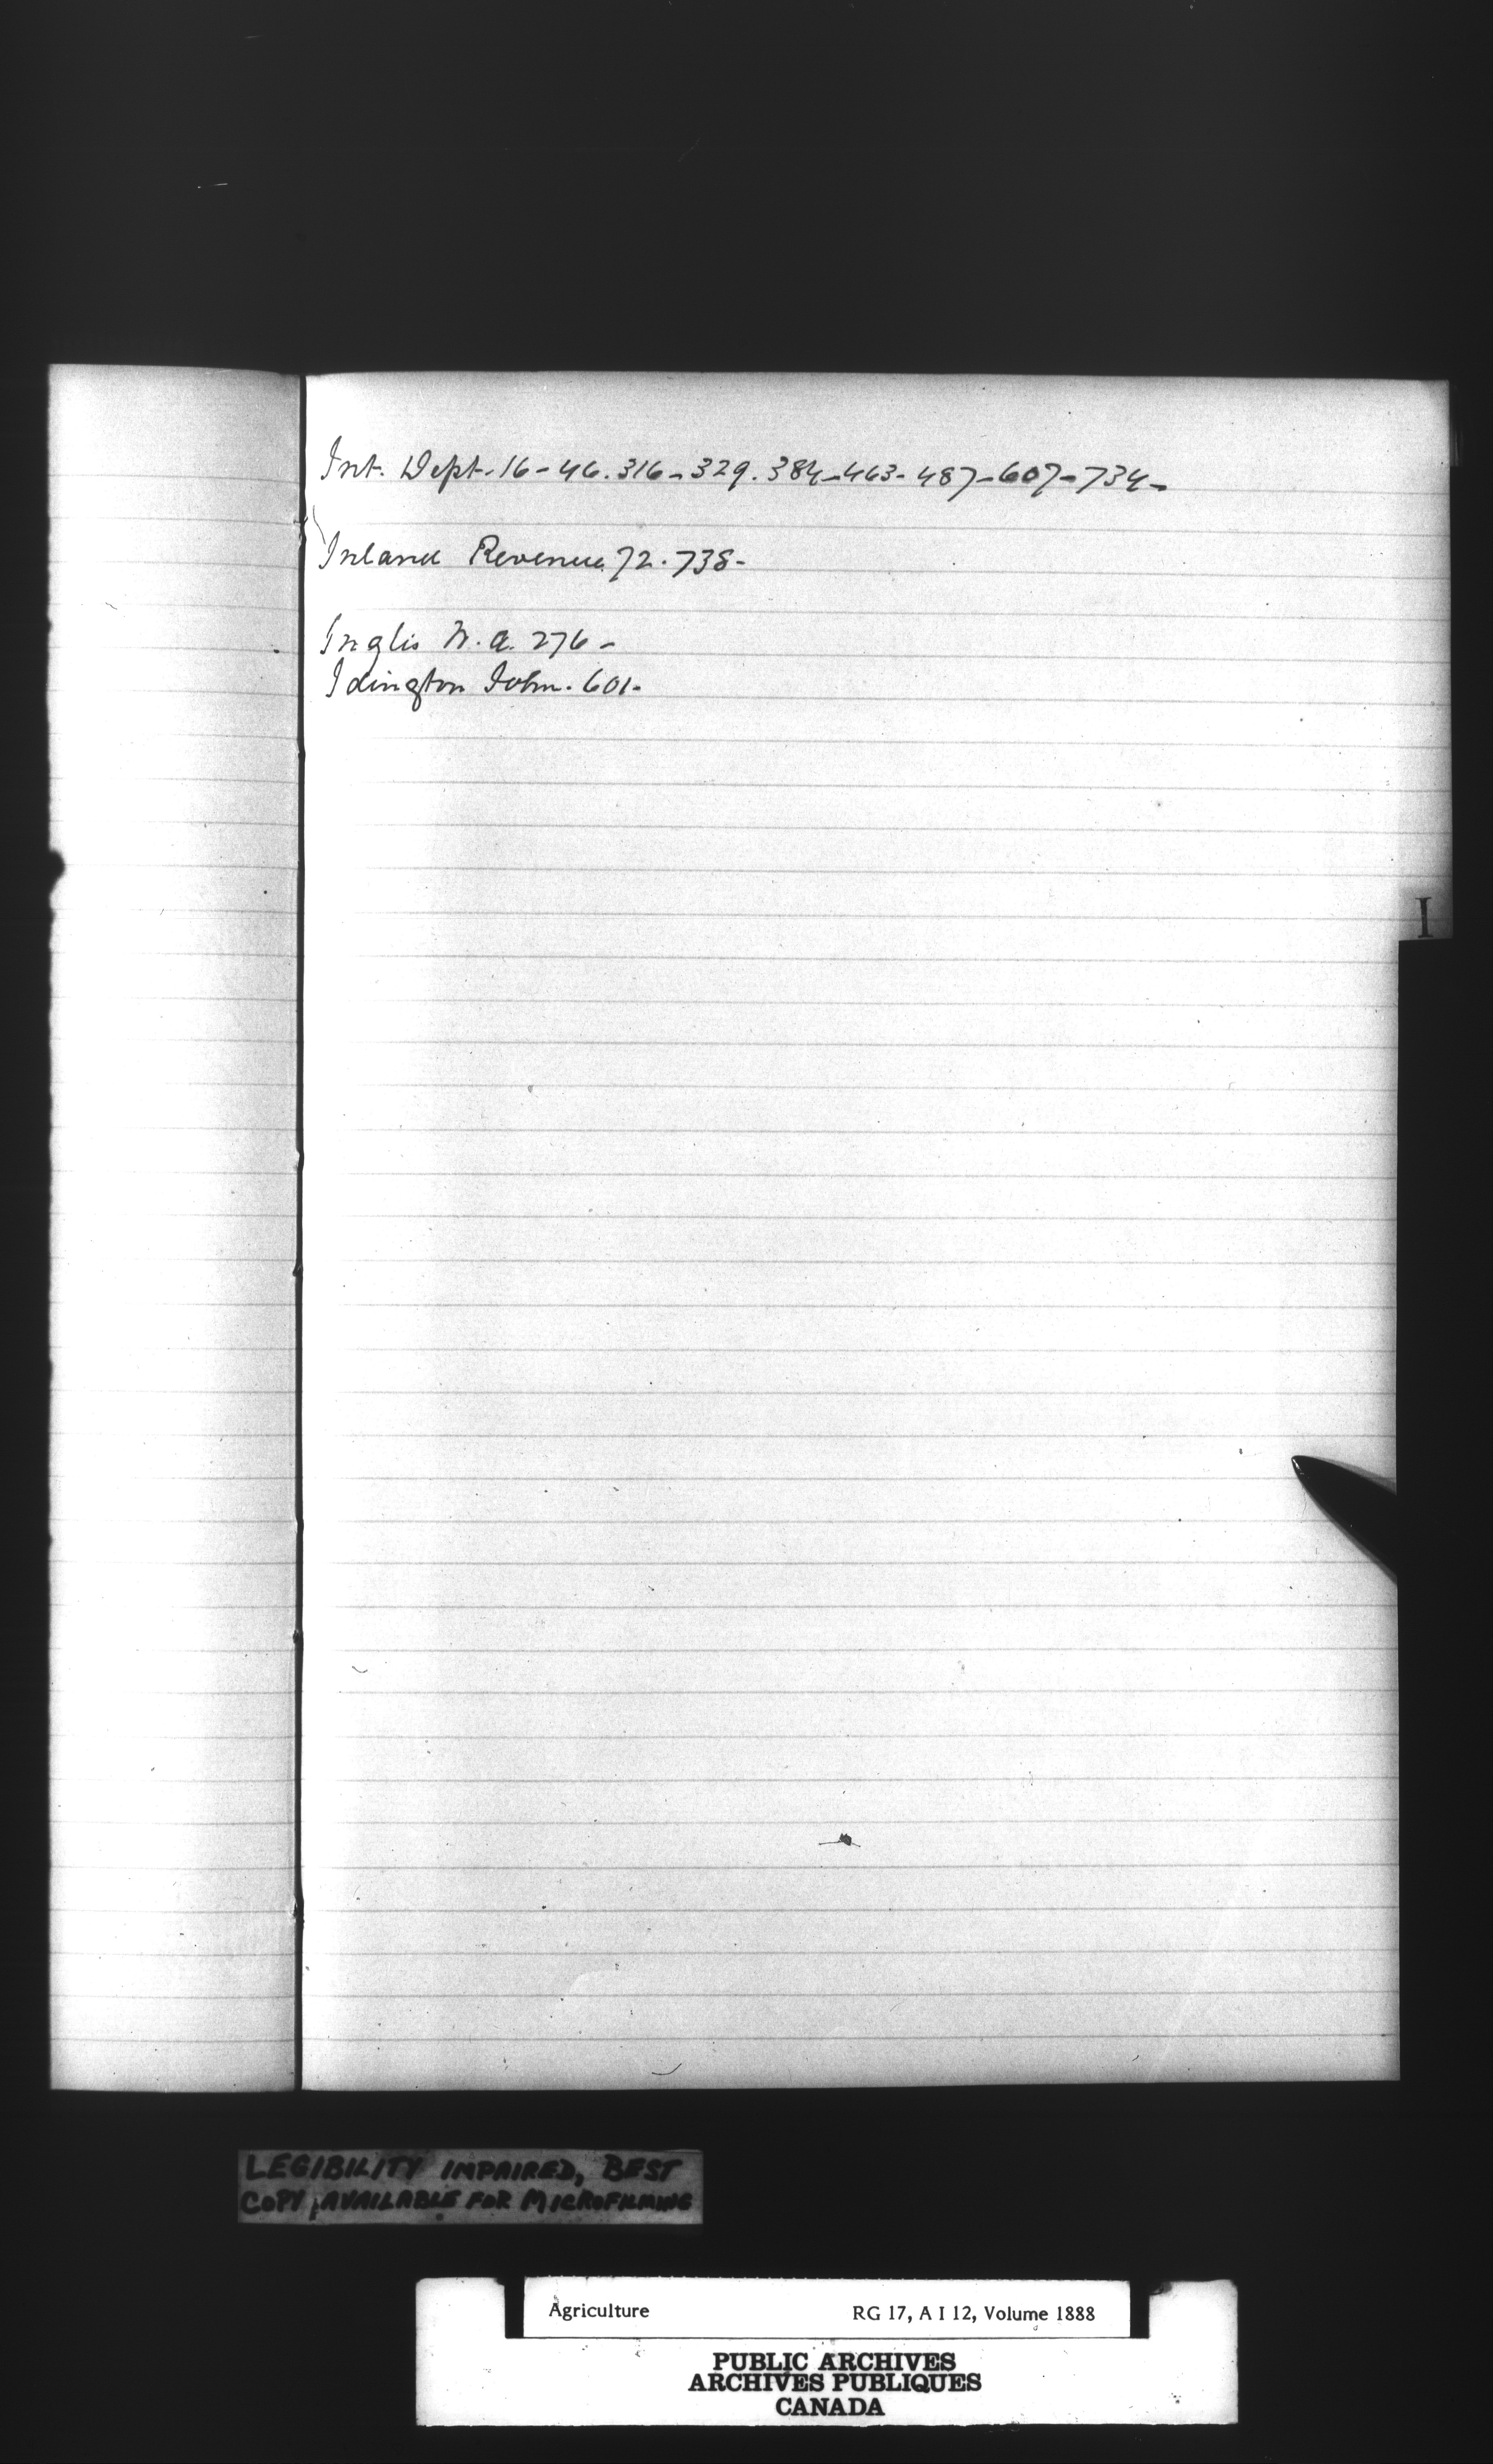 Int. Dept. 16-46.316-329.384-463-487-607-734-
Inland Revenue 72.738-
Inglis W. A. 276-
Idington John. 601-
I
LEGIBILITY IMPAIRED, BEST
COPY AVAILABLE FOR MICROFILMING
Agriculture RG 17, A I 12, Volume 1888
PUBLIC ARCHIVES
ARCHIVES PUBLIQUES
CANADA